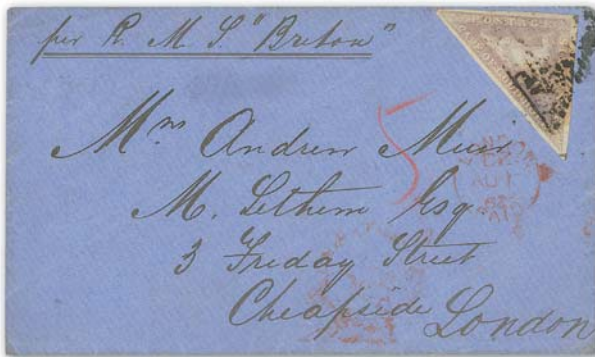 per R. M. S. "Briton"
POSTAGE
Mrs Andrew Muir
5
M. Lethem Esq
3 Friday Street
Cheapside London